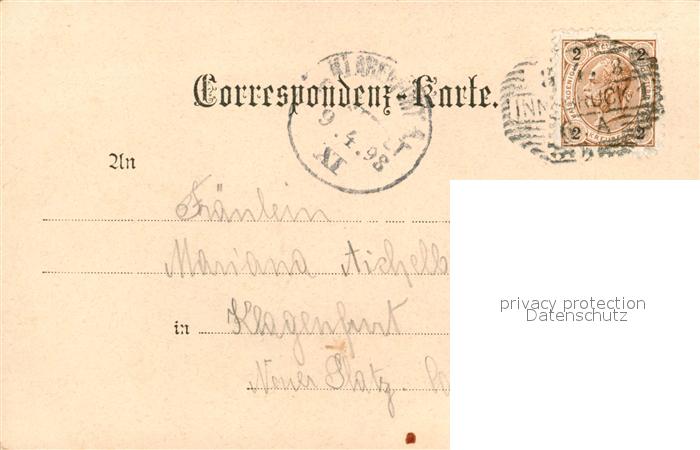 2 2
INNSBRUCK
A
2 2
Correspondenz-Karte.
9.4.98
IX
An
Fräulein
Mariana Aichelb
privacy protection
Datenschutz
in Klagenfurt
Neuer Platz